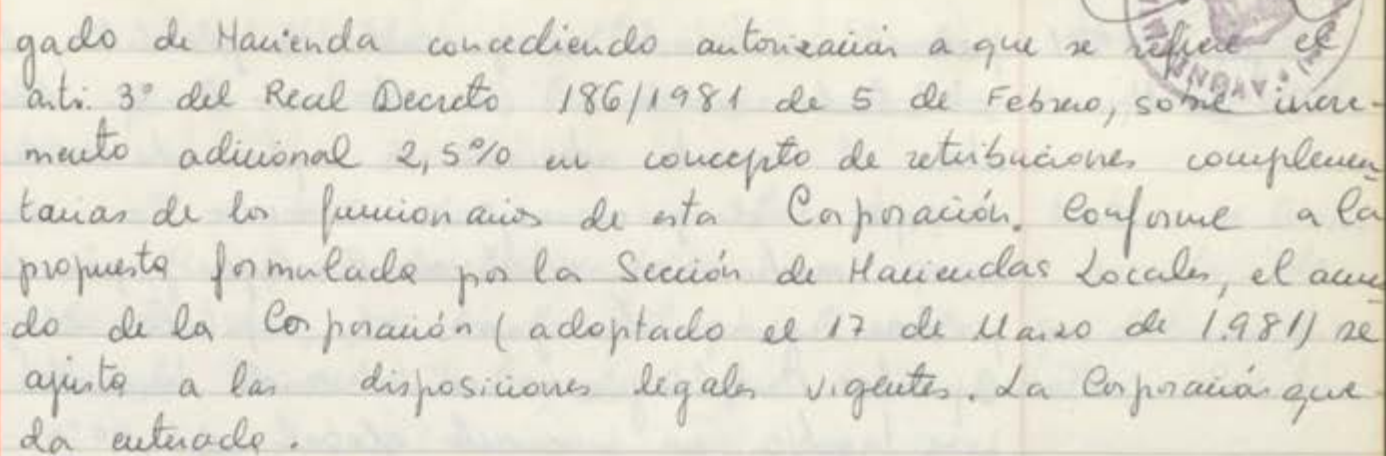 gado de Hacienda concediendo autorización a que se refiere el
arti. 3º del Real Decreto 186/1981 de 5 de Febrero, sobre incre-
mento adicional 2,5% en concepto de retribuciones complemen
tarias de los funcionarios de esta Corporación. Conforme a la
propuesta formulada por la Sección de Haciendas Locales, el acuer
do de la Corporación (adoptado el 17 de Marzo de 1.981) se
ajusta a las disposiciones legales vigentes. La Corporación que-
da enterada.